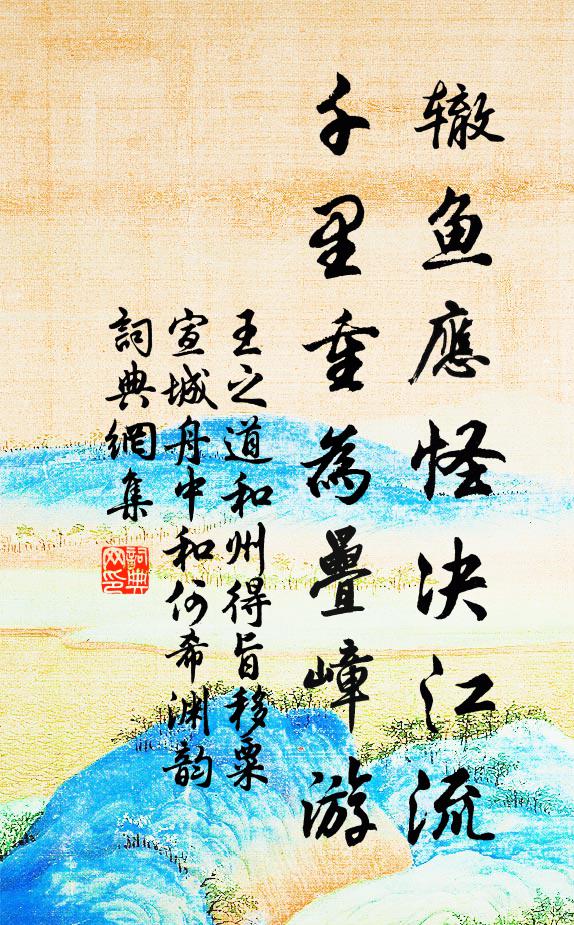 辙鱼應怪决江流
千里重為疊嶂游
王之道和州得旨移粟
宣城舟中和何希渊韵
詞典網集
詞典网印